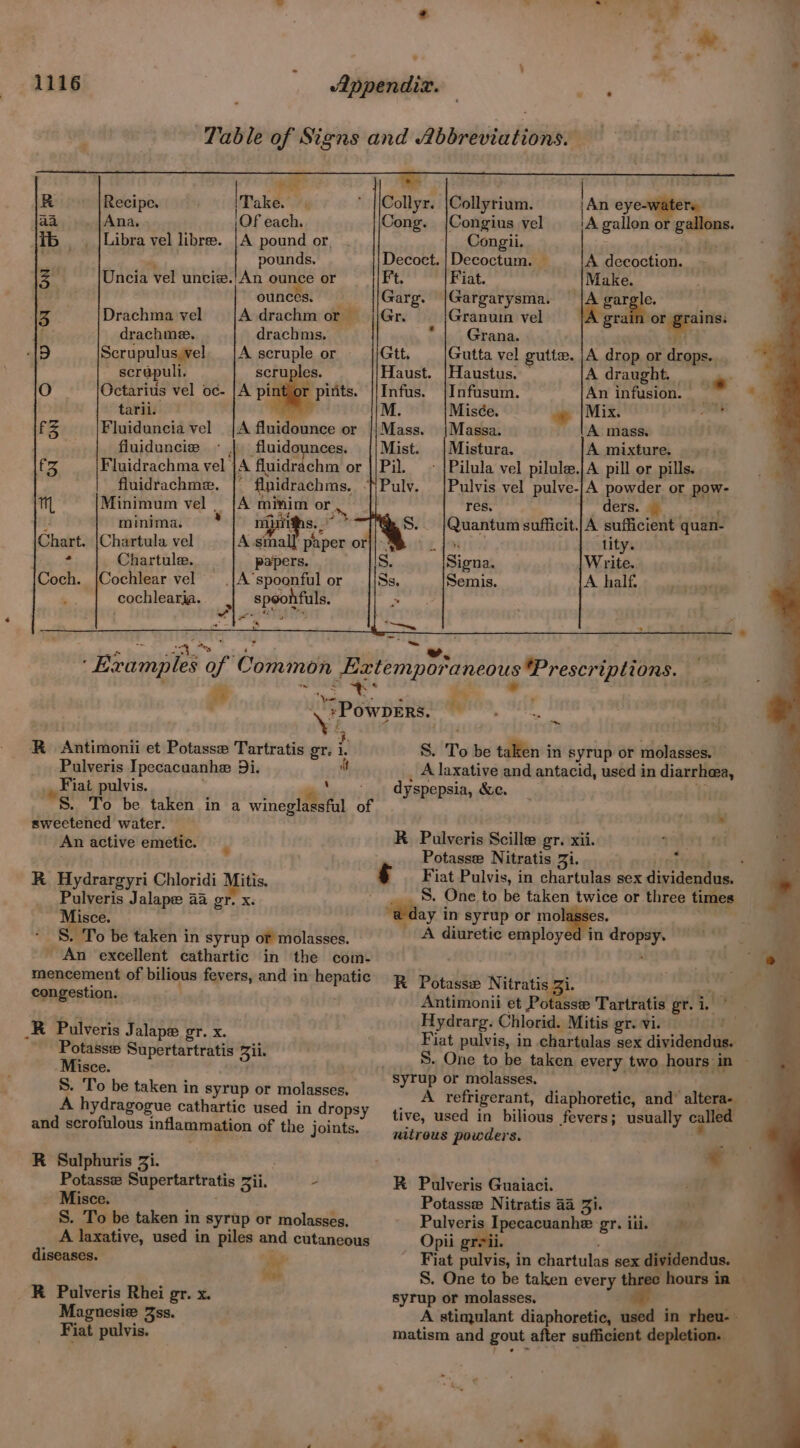 1116 Appendix.
Table of Signs and Abbreviations.
℞ Recipe. Take.
āā Ana. Of each.
℔ Libra vel libræ. A pound or
pounds.
℥ Uncia vel unciæ. An ounce or
ounces.
ʒ Drachma vel A drachm or
drachmæ. drachms.
℈ Scrupulus vel A scruple or
scrupuli. scruples.
O Octarius vel oc- A pint or pints.
tarii.
f℥ Fluiduncia vel A fluidounce or
fluidunciæ fluidounces.
fʒ Fluidrachma vel A fluidrachm or
fluidrachmæ. fluidrachms.
♏ Minimum vel A minim or
minima. minims.
Chart. Chartula vel A small paper or
Chartulæ. papers.
Coch. Cochlear vel A spoonful or
cochlearia. spoonfuls.
Collyr. Collyrium. An eye-water.
Cong. Congius vel A gallon or gallons.
Congii.
Decoct. Decoctum. A decoction.
Ft. Fiat. Make.
Garg. Gargarysma. A gargle.
Gr. Granum vel A grain or grains.
Grana.
Gtt. Gutta vel guttæ. A drop or drops.
Haust. Haustus. A draught.
Infus. Infusum. An infusion.
M. Misce. Mix.
Mass. Massa. A mass.
Mist. Mistura. A mixture.
Pil. Pilula vel pilulæ. A pill or pills.
Pulv. Pulvis vel pulve- A powder or pow-
res. ders.
S. Quantum sufficit. A sufficient quan-
tity.
S. Signa. Write.
Ss. Semis. A half.
Examples of Common Extemporaneous Prescriptions.
POWDERS.
℞ Antimonii et Potassæ Tartratis gr. i.
Pulveris Ipecacuanhæ ℈i.
Fiat pulvis.
S. To be taken in a wineglassful of
sweetened water.
An active emetic.
℞ Hydrargyri Chloridi Mitis.
Pulveris Jalapæ āā gr. x.
Misce.
S. To be taken in syrup or molasses.
An excellent cathartic in the com-
mencement of bilious fevers, and in hepatic
congestion.
℞ Pulveris Jalapæ gr. x.
Potassæ Supertartratis ʒii.
Misce.
S. To be taken in syrup or molasses.
A hydragogue cathartic used in dropsy
and scrofulous inflammation of the joints.
℞ Sulphuris ʒi.
Potassæ Supertartratis ʒii.
Misce.
S. To be taken in syrup or molasses.
A laxative, used in piles and cutaneous
diseases.
℞ Pulveris Rhei gr. x.
Magnesiæ ʒss.
Fiat pulvis.
S. To be taken in syrup or molasses.
A laxative and antacid, used in diarrhœa,
dyspepsia, &c.
℞ Pulveris Scillæ gr. xii.
Potassæ Nitratis ʒi.
Fiat Pulvis, in chartulas sex dividendus.
S. One to be taken twice or three times
a day in syrup or molasses.
A diuretic employed in dropsy.
℞ Potassæ Nitratis ʒi.
Antimonii et Potassæ Tartratis gr. i.
Hydrarg. Chlorid. Mitis gr. vi.
Fiat pulvis, in chartulas sex dividendus.
S. One to be taken every two hours in
syrup or molasses.
A refrigerant, diaphoretic, and altera-
tive, used in bilious fevers; usually called
nitrous powders.
℞ Pulveris Guaiaci.
Potassæ Nitratis āā ʒi.
Pulveris Ipecacuanhæ gr. iii.
Opii gr. ii.
Fiat pulvis, in chartulas sex dividendus.
S. One to be taken every three hours in
syrup or molasses.
A stimulant diaphoretic, used in rheu-
matism and gout after sufficient depletion.